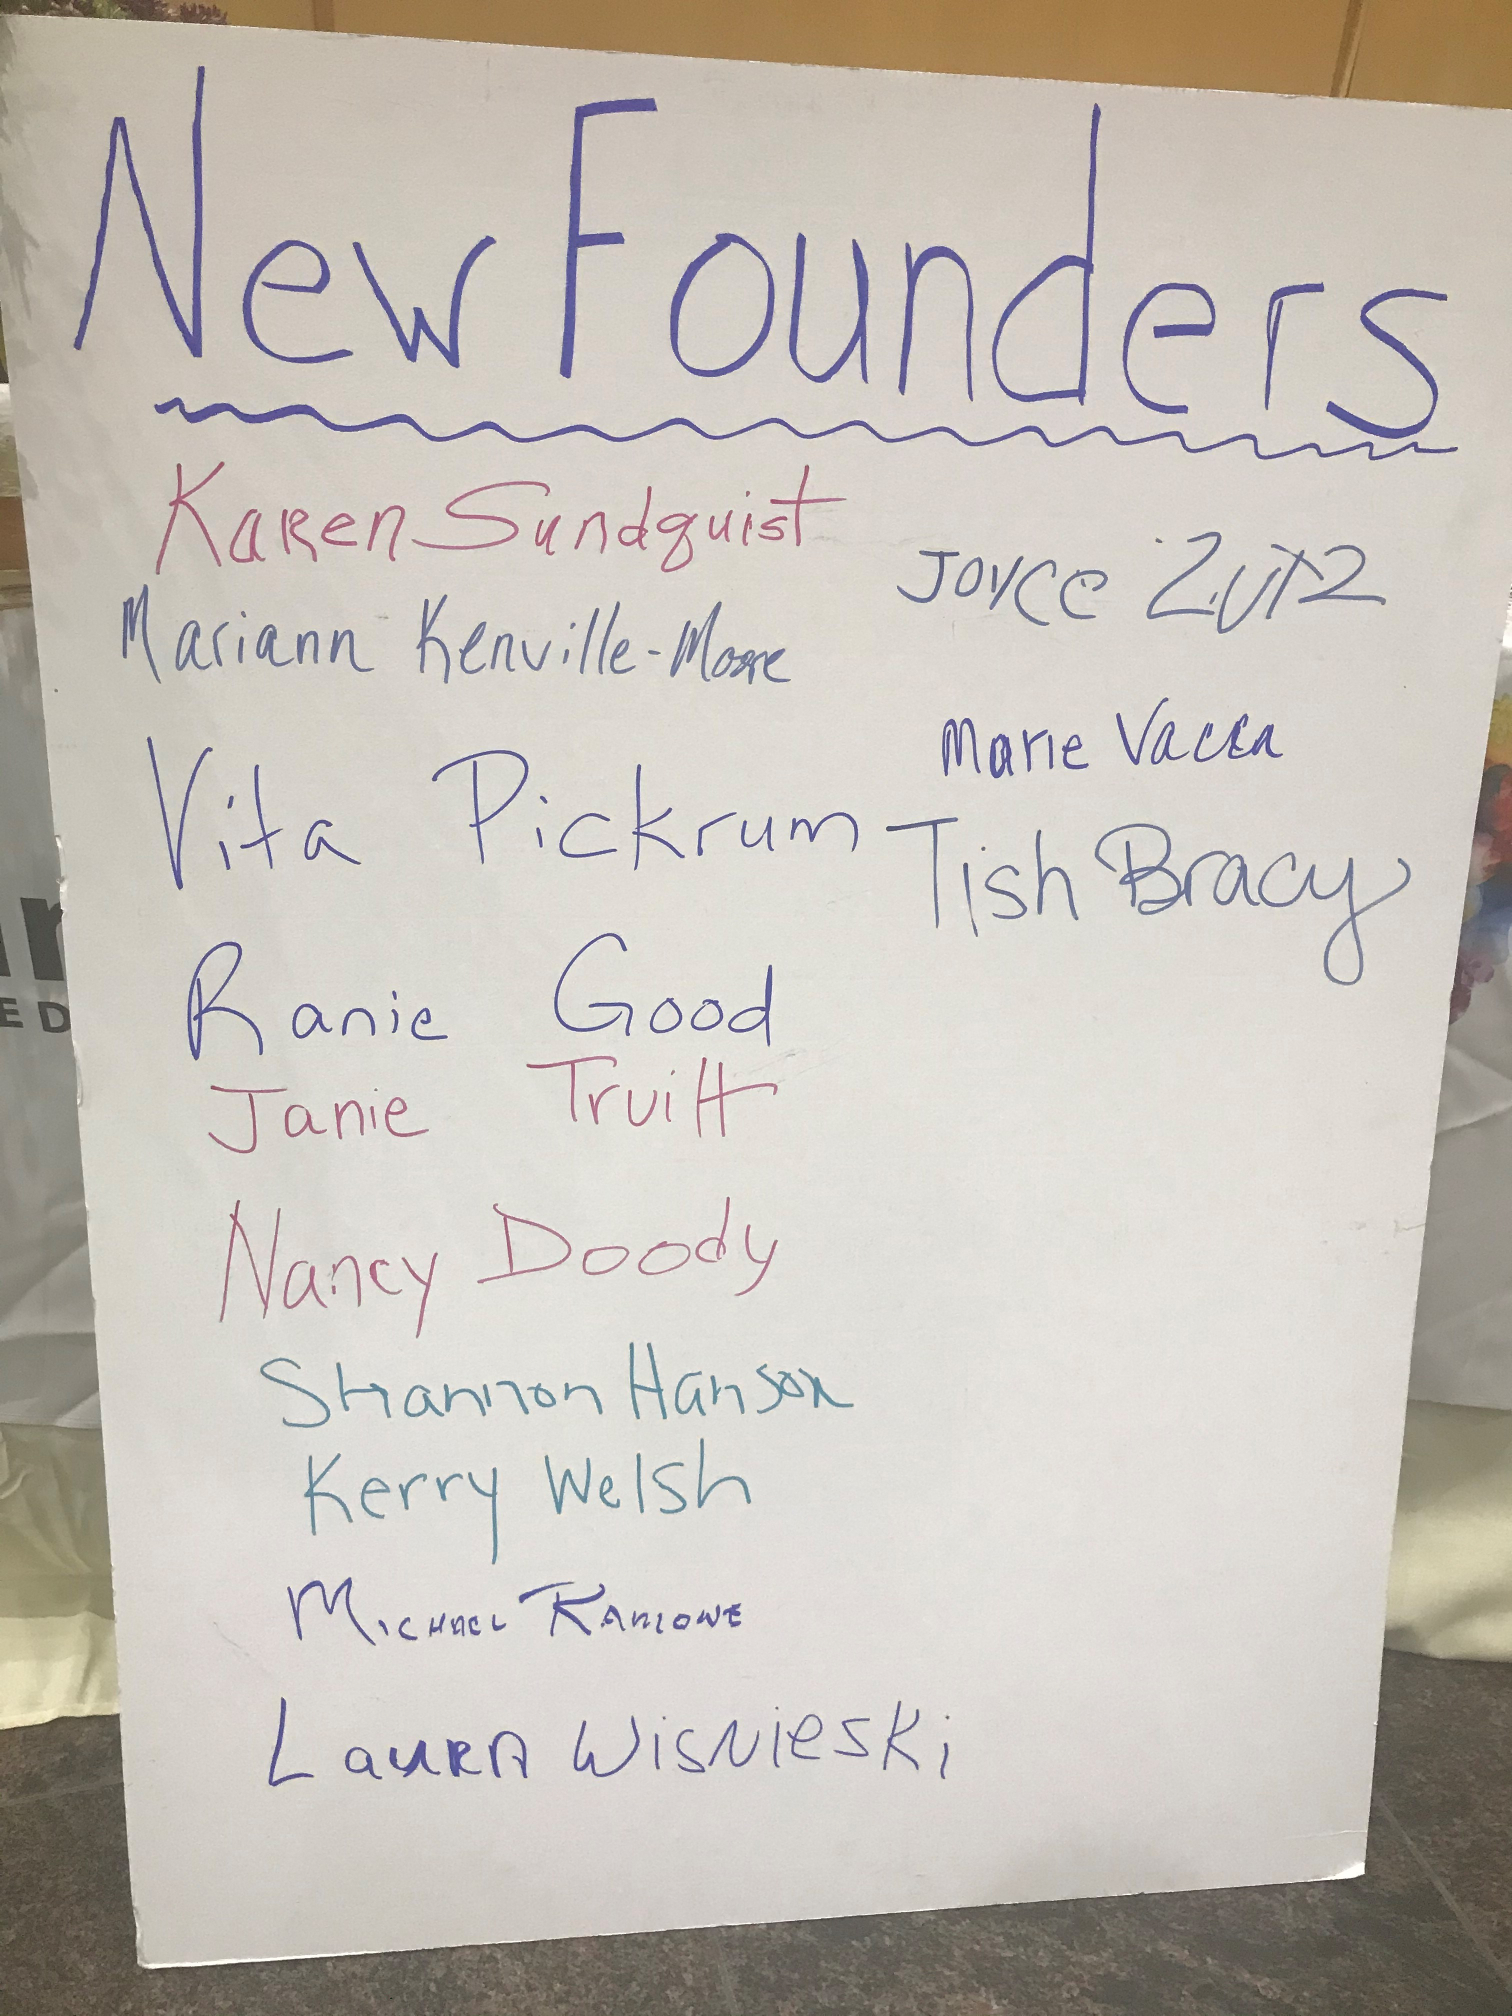 New Founders
Karen Sundquist
Mariann Kenville-Moore
Vita Pickrum
Ranie Good
Janie Truitt
Nancy Doody
Shannon Hanson
Kerry Welsh
Michael
Laura Wisnieski
Joyce Zutz
Marie Vacca
Tish Bracy
ED